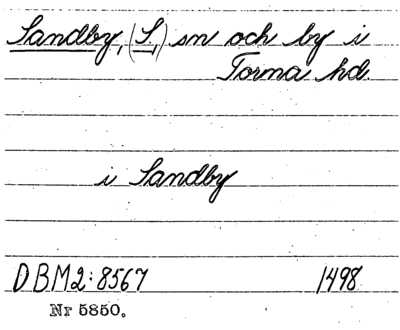 Sandby, (S.,) sn och by i
Torna hd.
i Sandby
DBM2:8567 1498
Nr 5850.